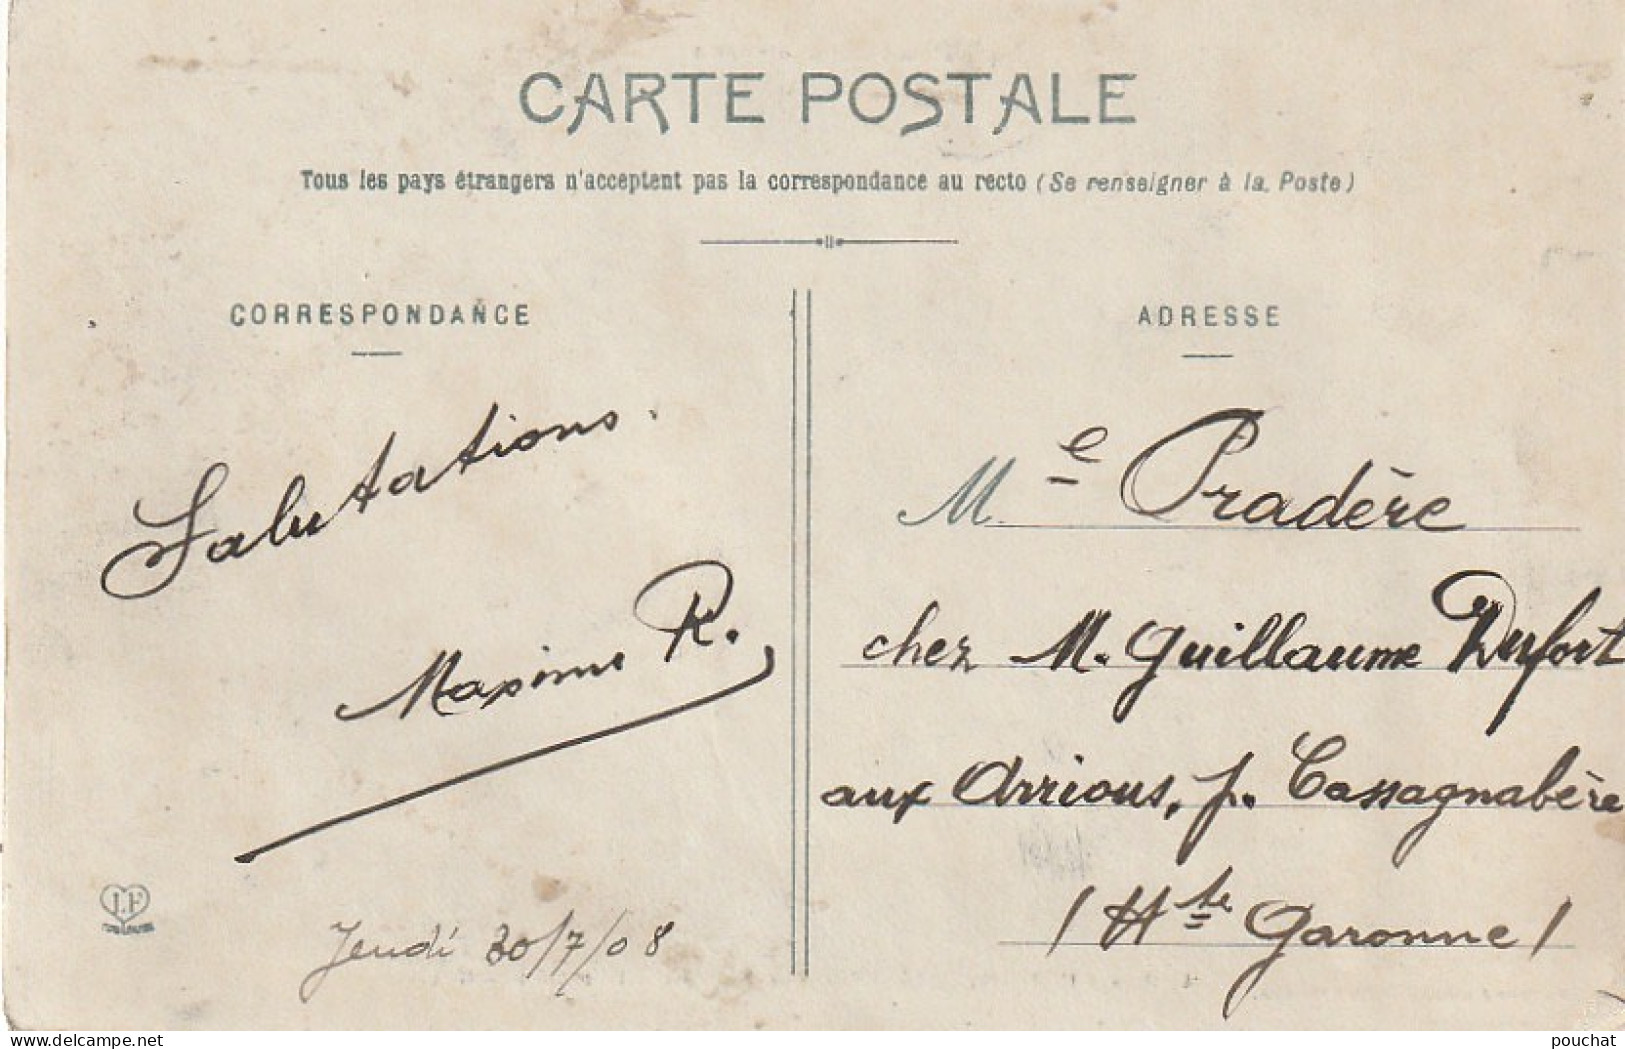 CARTE POSTALE
Tous les pays étrangers n'acceptent pas la correspondance au recto (Se renseigner à la Poste)
CORRESPONDANCE
Salutations.
Maxime R.
Jeudi 30/7/08
L.F
ADRESSE
M.e Pradère
chez M. Guillaume Dufort
aux Arrious, p. Cassagnabère
(Hte Garonne)
delcampe.net
pouchat